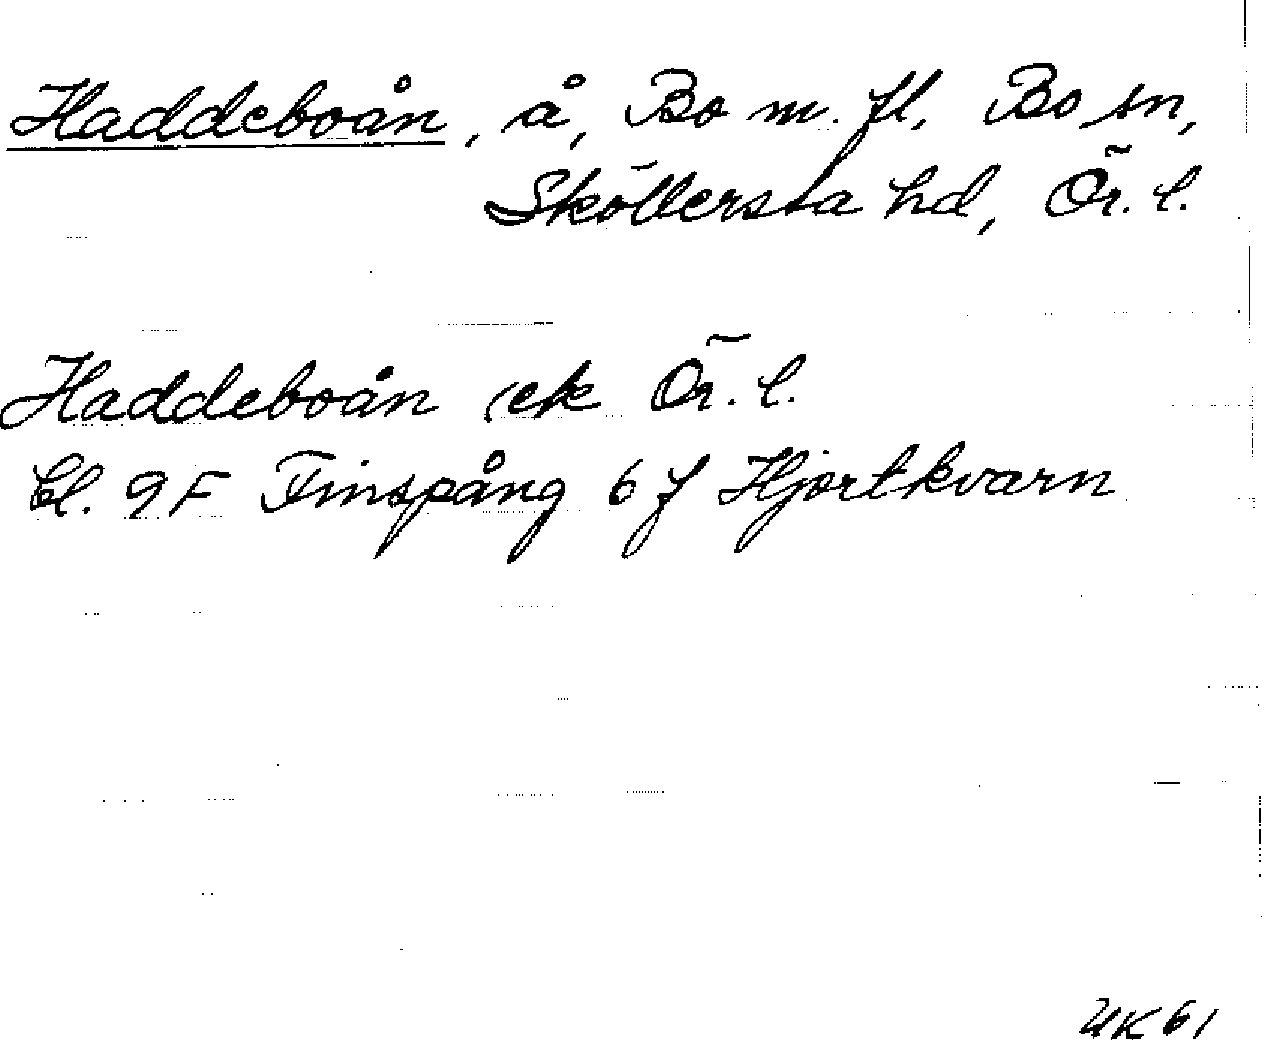 Haddeboån, å, Bo m. fl. Bo sn,
Sköllersta hd, Ör. l.
Haddeboån ek Ör. l.
bl. 9F Finspång 6 f Hjortkvarn
UK 61